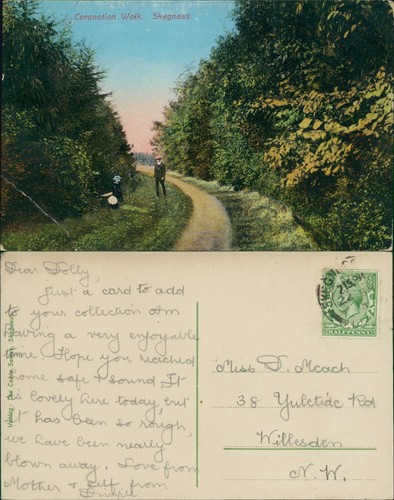 Coronation Walk. Skegness.
Dear Dolly,
Just a card to add
to your collection. Am
having a very enjoyable
time. Hope you reached
home safe & sound. It
is lovely here today, but
it has been so rough,
we have been nearly
blown away. Love from
Mother & self. from
Miss D. Meach
38 Yuletide Rd
Willesden
N. W.
HALFPENNY